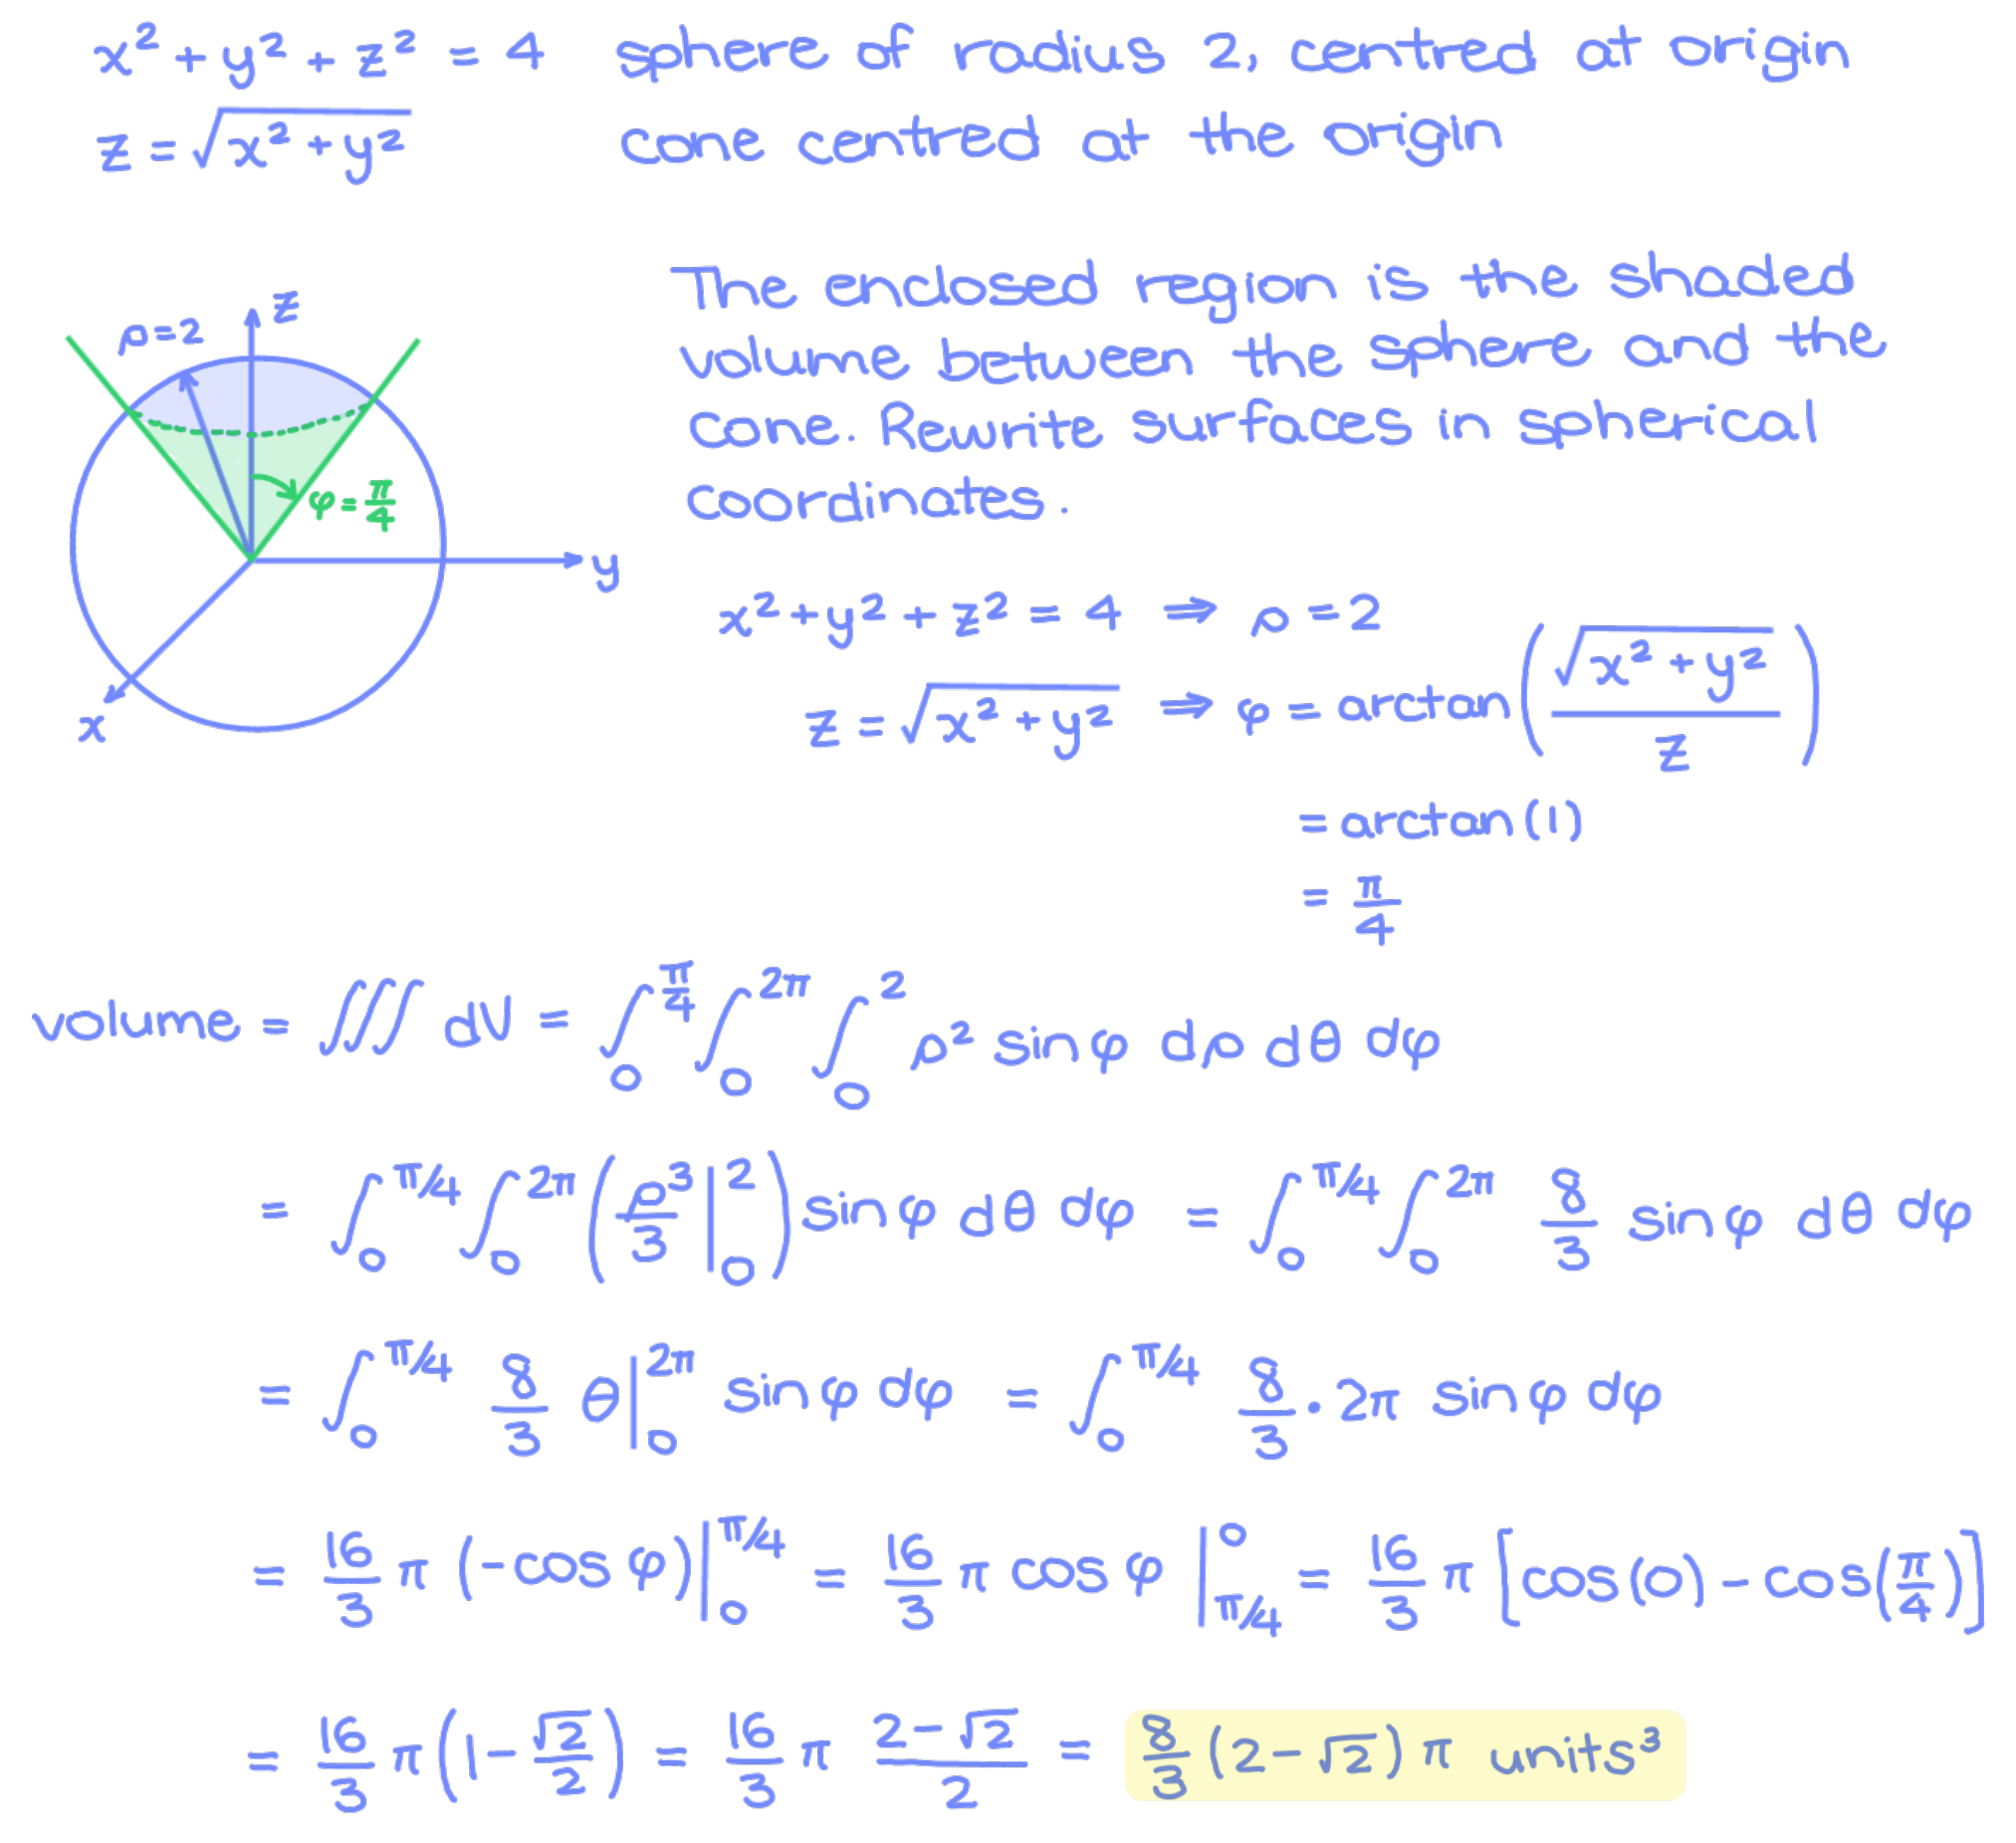 x² + y² + z² = 4 sphere of radius 2, centred at origin
z = √(x² + y²) cone centred at the origin
The enclosed region is the shaded
volume between the sphere and the
cone. Rewrite surfaces in spherical
coordinates.
z
ρ=2
φ = π/4
y
x
x² + y² + z² = 4 ⇒ ρ = 2
z = √(x² + y²) ⇒ φ = arctan(√(x² + y²)/z)
= arctan(1)
= π/4
volume = ∭ dV = ∫₀^(π/4) ∫₀^(2π) ∫₀^2 ρ² sin φ dρ dθ dφ
= ∫₀^(π/4) ∫₀^(2π) (ρ³/3 |₀^2) sin φ dθ dφ = ∫₀^(π/4) ∫₀^(2π) 8/3 sin φ dθ dφ
= ∫₀^(π/4) 8/3 θ|₀^(2π) sin φ dφ = ∫₀^(π/4) 8/3 · 2π sin φ dφ
= 16/3 π (-cos φ)|₀^(π/4) = 16/3 π cos φ |_(π/4)^0 = 16/3 π [cos(0) - cos(π/4)]
= 16/3 π (1 - √2/2) = 16/3 π (2-√2)/2 = 8/3 (2-√2) π units³